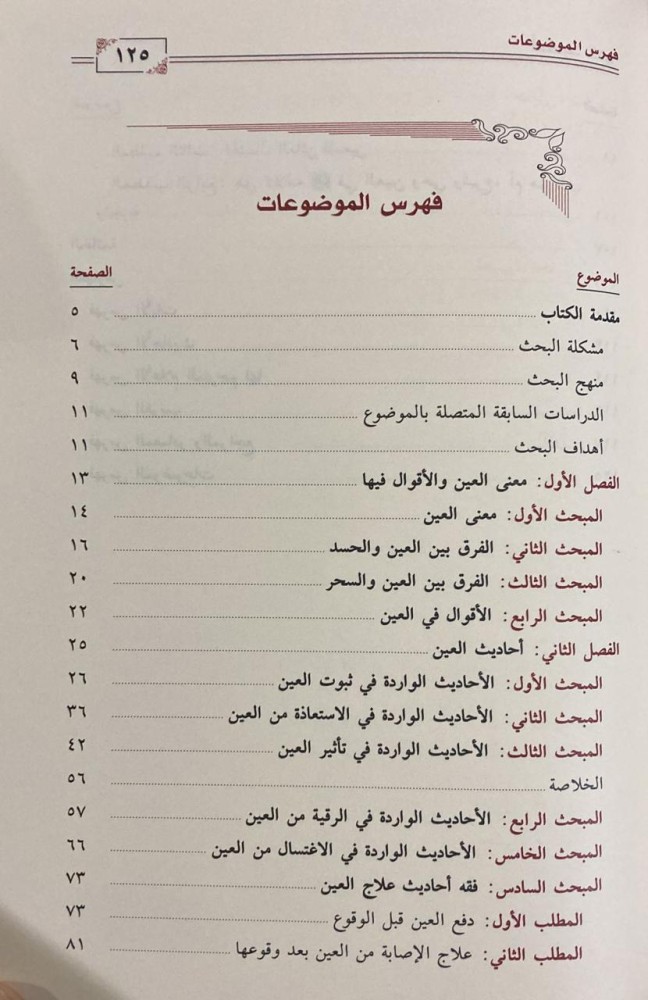 فهرس الموضوعات ١٢٥
فهرس الموضوعات
الموضوع الصفحة
مقدمة الكتاب ٥
مشكلة البحث ٦
منهج البحث ٩
الدراسات السابقة المتصلة بالموضوع ١١
أهداف البحث ١١
الفصل الأول: معنى العين والأقوال فيها ١٣
المبحث الأول: معنى العين ١٤
المبحث الثاني: الفرق بين العين والحسد ١٦
المبحث الثالث: الفرق بين العين والسحر ٢٠
المبحث الرابع: الأقوال في العين ٢٢
الفصل الثاني: أحاديث العين ٢٥
المبحث الأول: الأحاديث الواردة في ثبوت العين ٢٦
المبحث الثاني: الأحاديث الواردة في الاستعاذة من العين ٣٦
المبحث الثالث: الأحاديث الواردة في تأثير العين ٤٢
الخلاصة ٥٦
المبحث الرابع: الأحاديث الواردة في الرقية من العين ٥٧
المبحث الخامس: الأحاديث الواردة في الاغتسال من العين ٦٦
المبحث السادس: فقه أحاديث علاج العين ٧٣
المطلب الأول: دفع العين قبل الوقوع ٧٣
المطلب الثاني: علاج الإصابة من العين بعد وقوعها ٨١